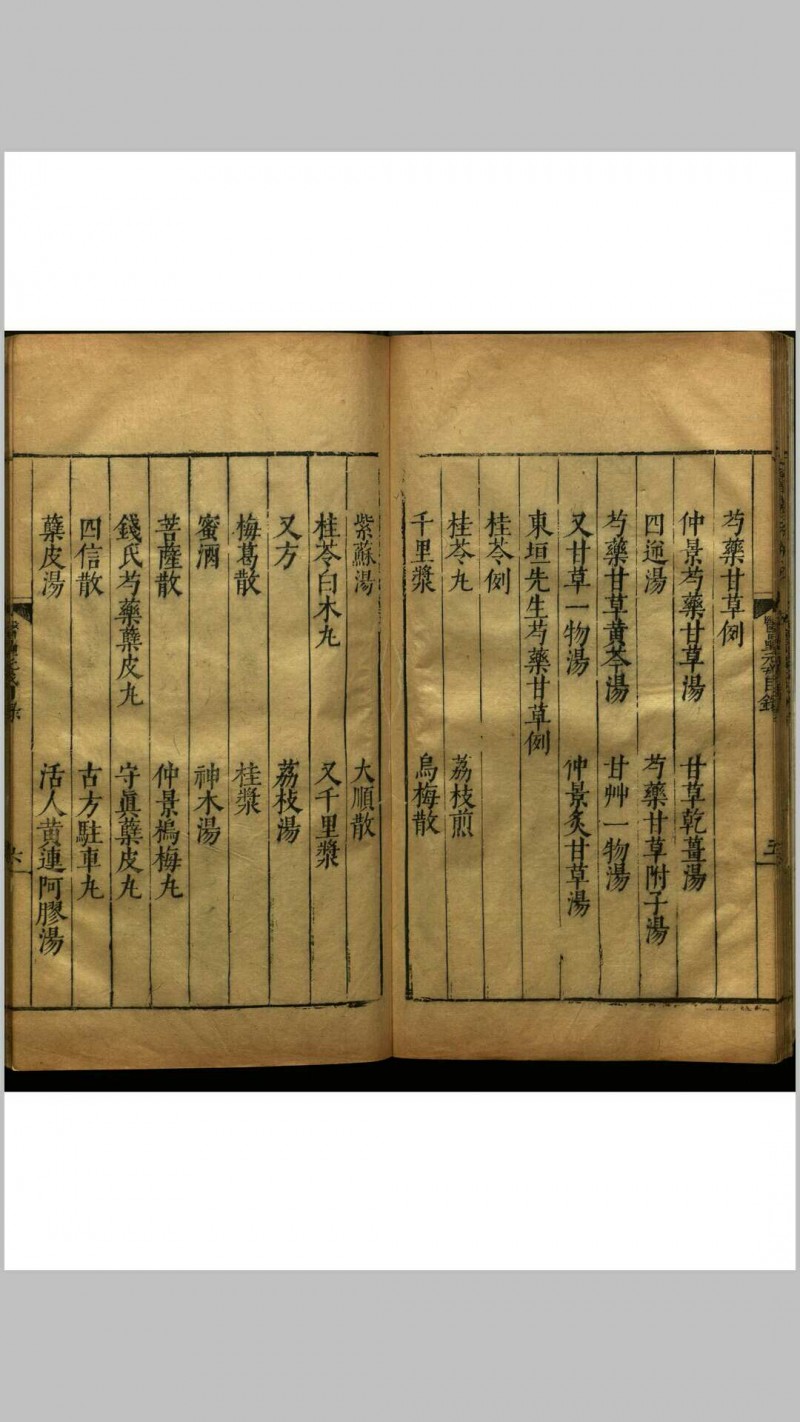 芍藥甘草例
仲景芍藥甘草湯　甘草乾薑湯
四逆湯　芍藥甘草附子湯
芍藥甘草黃芩湯　甘艸一物湯
又甘草一物湯　仲景炙甘草湯
東垣先生芍藥甘草例
桂苓例
桂苓丸　荔枝煎
千里漿　烏梅散
紫蘇湯　大順散
桂苓白木丸　又千里漿
又方　荔枝湯
梅葛散　桂漿
蜜酒　神木湯
菩薩散　仲景梅丸
錢氏芍藥蘗皮丸　守眞蘗皮丸
四信散　古方駐車丸
蘗皮湯　活人黃連阿膠湯